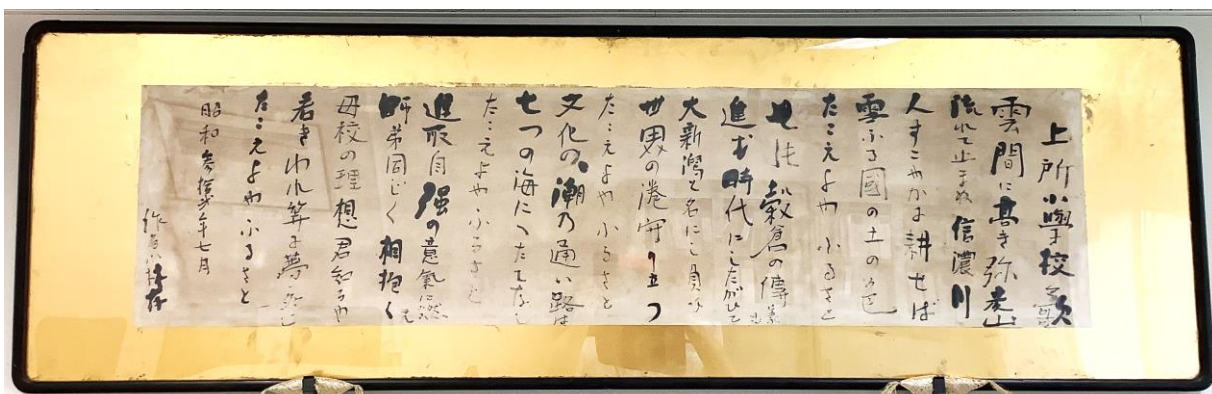 上所小學校之歌
雲間に高き弥彦山
流れて止まぬ信濃川
人すこやかに耕せば
雪ふる國の土の色
たゝえよや ふるさと
穀倉の傳
進む時代にしたがひて
大新潟と名にし負ふ
世界の港守り立つ
たゝえよや ふるさと
文化の潮乃通い路は
七つの海にへだてなし
たゝえよや ふるさと
進取自強の意氣に燃え
師弟同じく相抱く
母校の理想君知るや
若きわれ等よ夢
たゝえよや ふるさと
昭和参拾弐年七月
八十